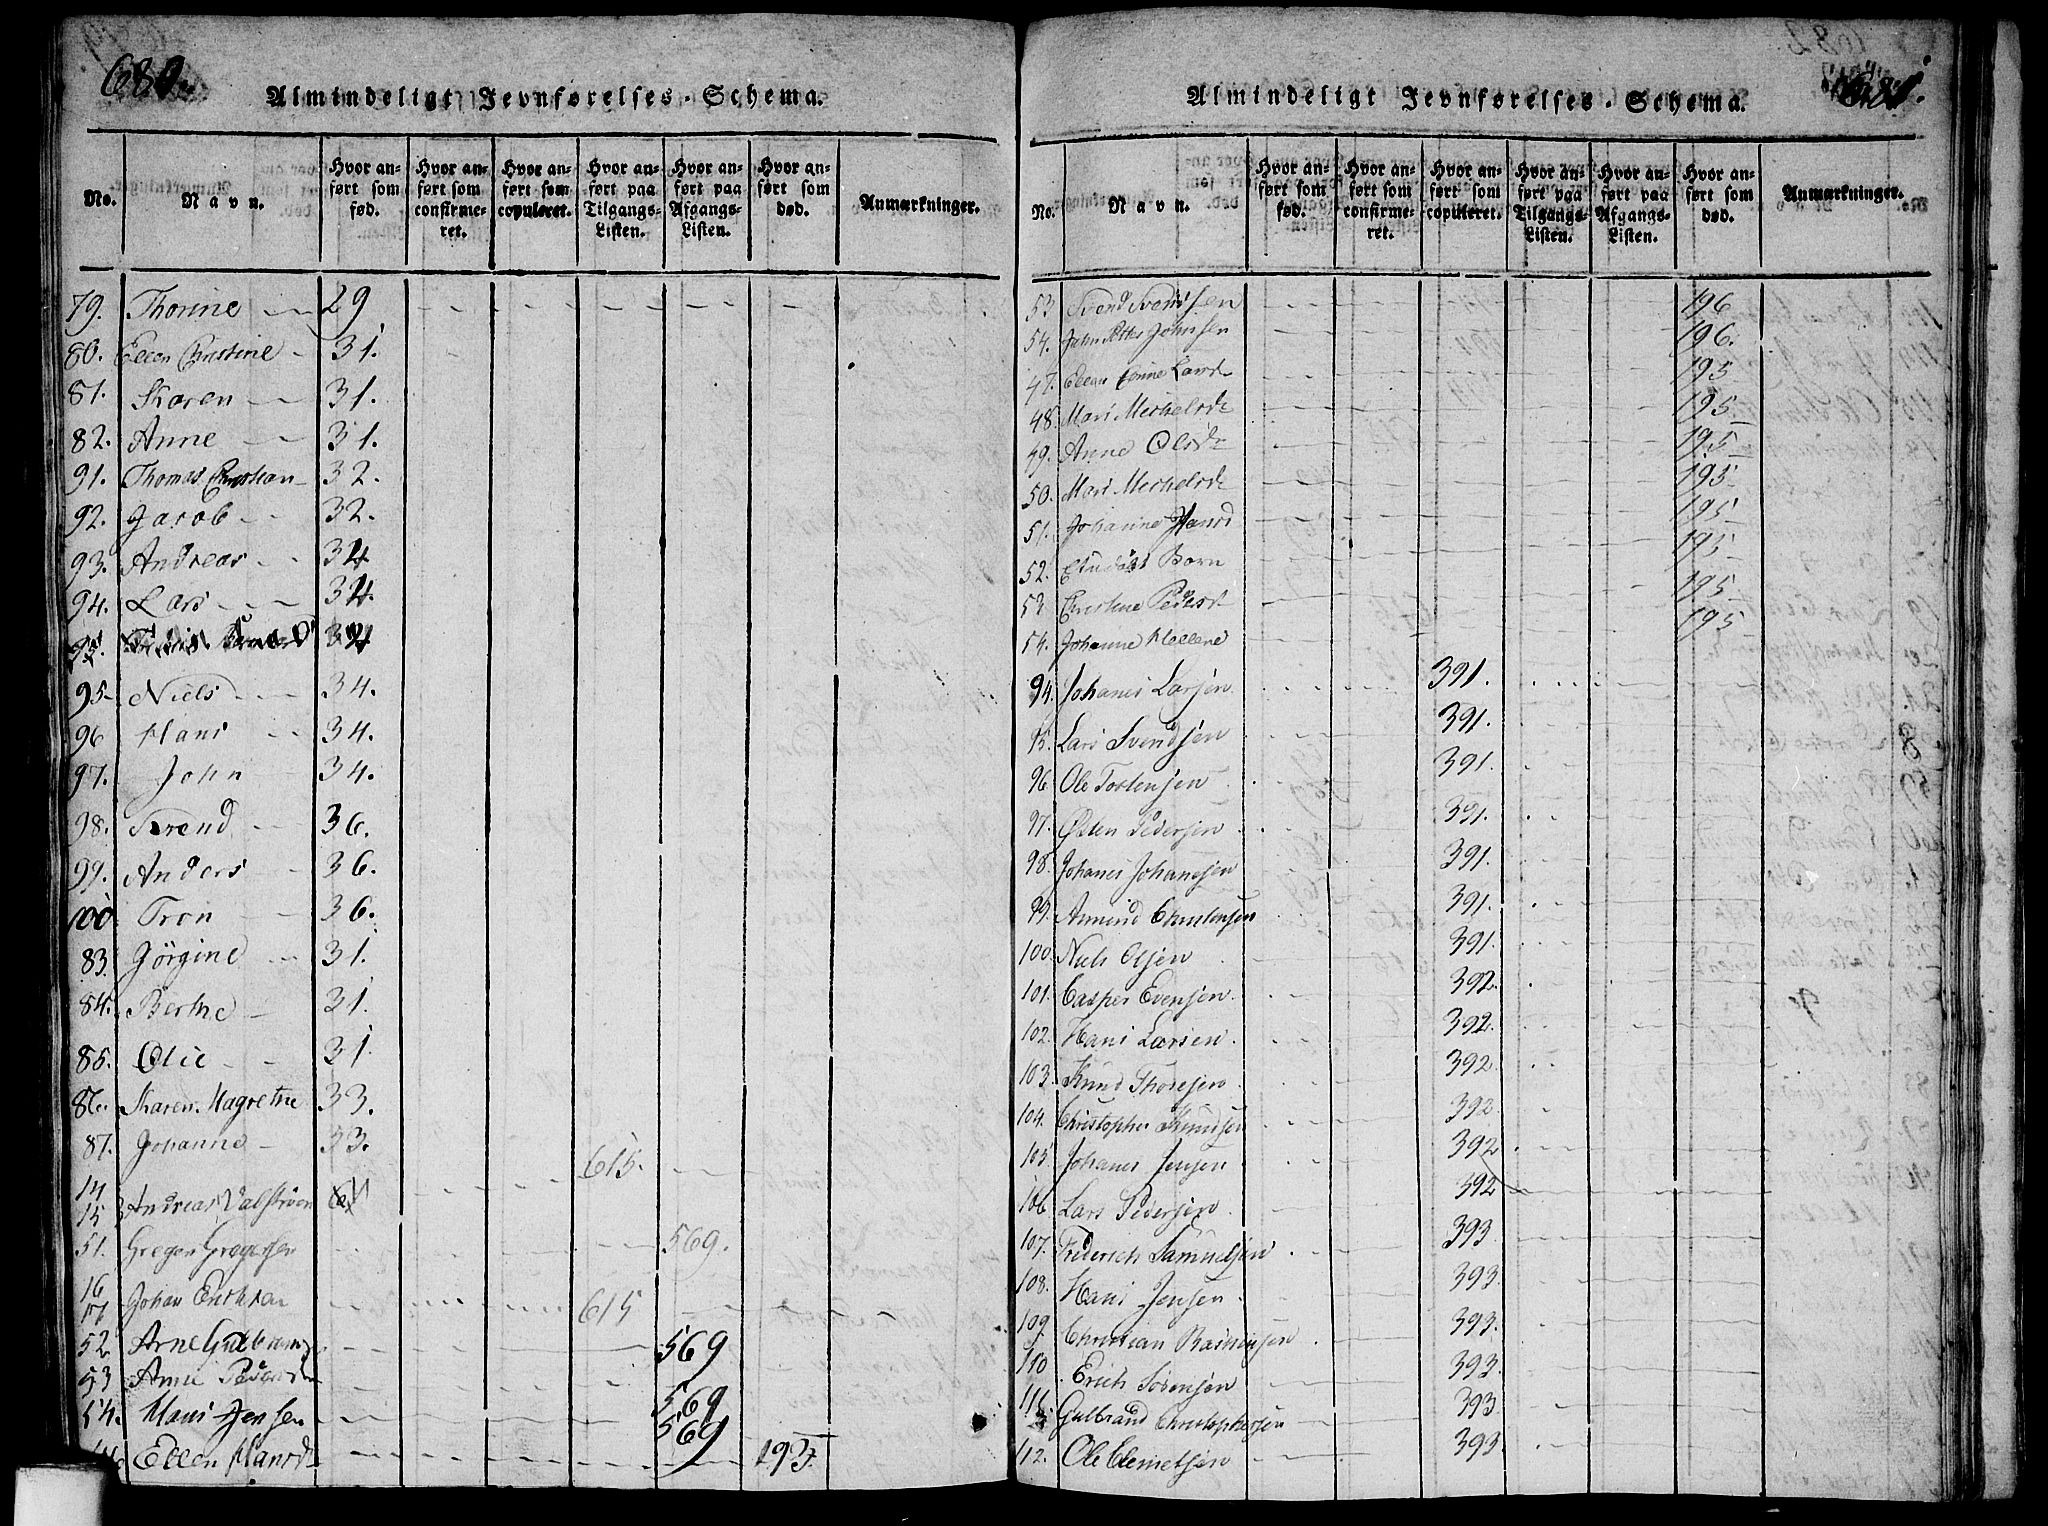 680.
Almindeligt Jevnførelses-Schema.
No.
Navn.
Hvor anført som fød.
Hvor anført som confirmeret.
Hvor anført som copuleret.
Hvor anført paa Tilgangs-Listen.
Hvor anført paa Afgangs-Listen.
Hvor anført som død.
Anmærkninger.
79. Thorine 29
80. Ellen Christine 31.
81. Karen 31.
82. Anne 31.
91. Thomas Christian 32.
92. Jacob 32.
93. Andreas 34
94. Lars 34.
95. 34
95 Niels 34.
96 Hans 34.
97. John 34.
98. Svend 36.
99. Anders 36.
100 Tron 36.
83. Jörgine 31.
84. Berthe 31.
85. Olie 31.
86. Karen Magrethe 33.
87. Johanne 33.
14 15 Andreas Valstrøm 615.
51. Gregers Gregersen 569.
16 17 Johan 615
52. Arne 569
53 Anne Pedersd
54. Hans Jensen 569
Ellen Hansd 569 193.
681.
Almindeligt Jevnførelses-Schema.
No.
Navn.
Hvor anført som fød.
Hvor anført som confirmeret.
Hvor anført som copuleret.
Hvor anført paa Tilgangs-Listen.
Hvor anført paa Afgangs-Listen.
Hvor anført som død.
Anmærkninger.
53 Svend Svendsen 196
54. John Johnsen 196.
47. Ellen Larsd 195
48. Mari Michelsd 195
49. Anne Olsd 195
50. Mari Michelsd 195
51. Johanne Hansd 195
52. Barn 195
53 Christine Pedersd 195
54. Johanne Hellene 195
94. Johanes Larsen 391.
95. Lars Svendsen 391.
96 Ole Tostensen 391.
97. Østen Pedersen 391.
98. Johanes Johanesen 391.
99. Amund Christensen 391.
100. Niels Olsen 391.
101. Casper Evensen 392.
102. Hans Larsen 392.
103. Knud Thoresen 392.
104. Christopher Knudsen 392
105. Johanes Jensen 392
106 Lars Pedersen 392
107. Friderich Samuelsen 393
108. Hans Jensen 393.
109. Christian Rasmusen 393.
110 Erich Sörensen 393.
111. Gulbrand Christophersen 393
112. Ole Clemetsen 393